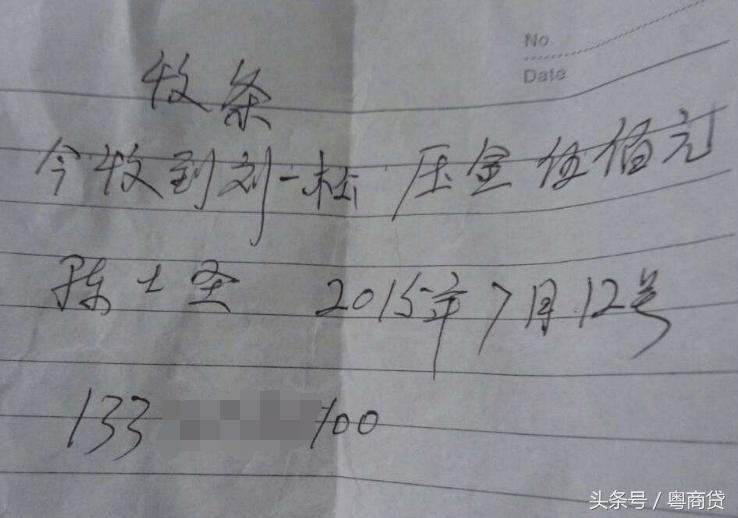 No
Date
收条
今收到刘一松 压金伍佰元
陈士圣 2015年7月12号
133 100
头条号 / 粤商贷